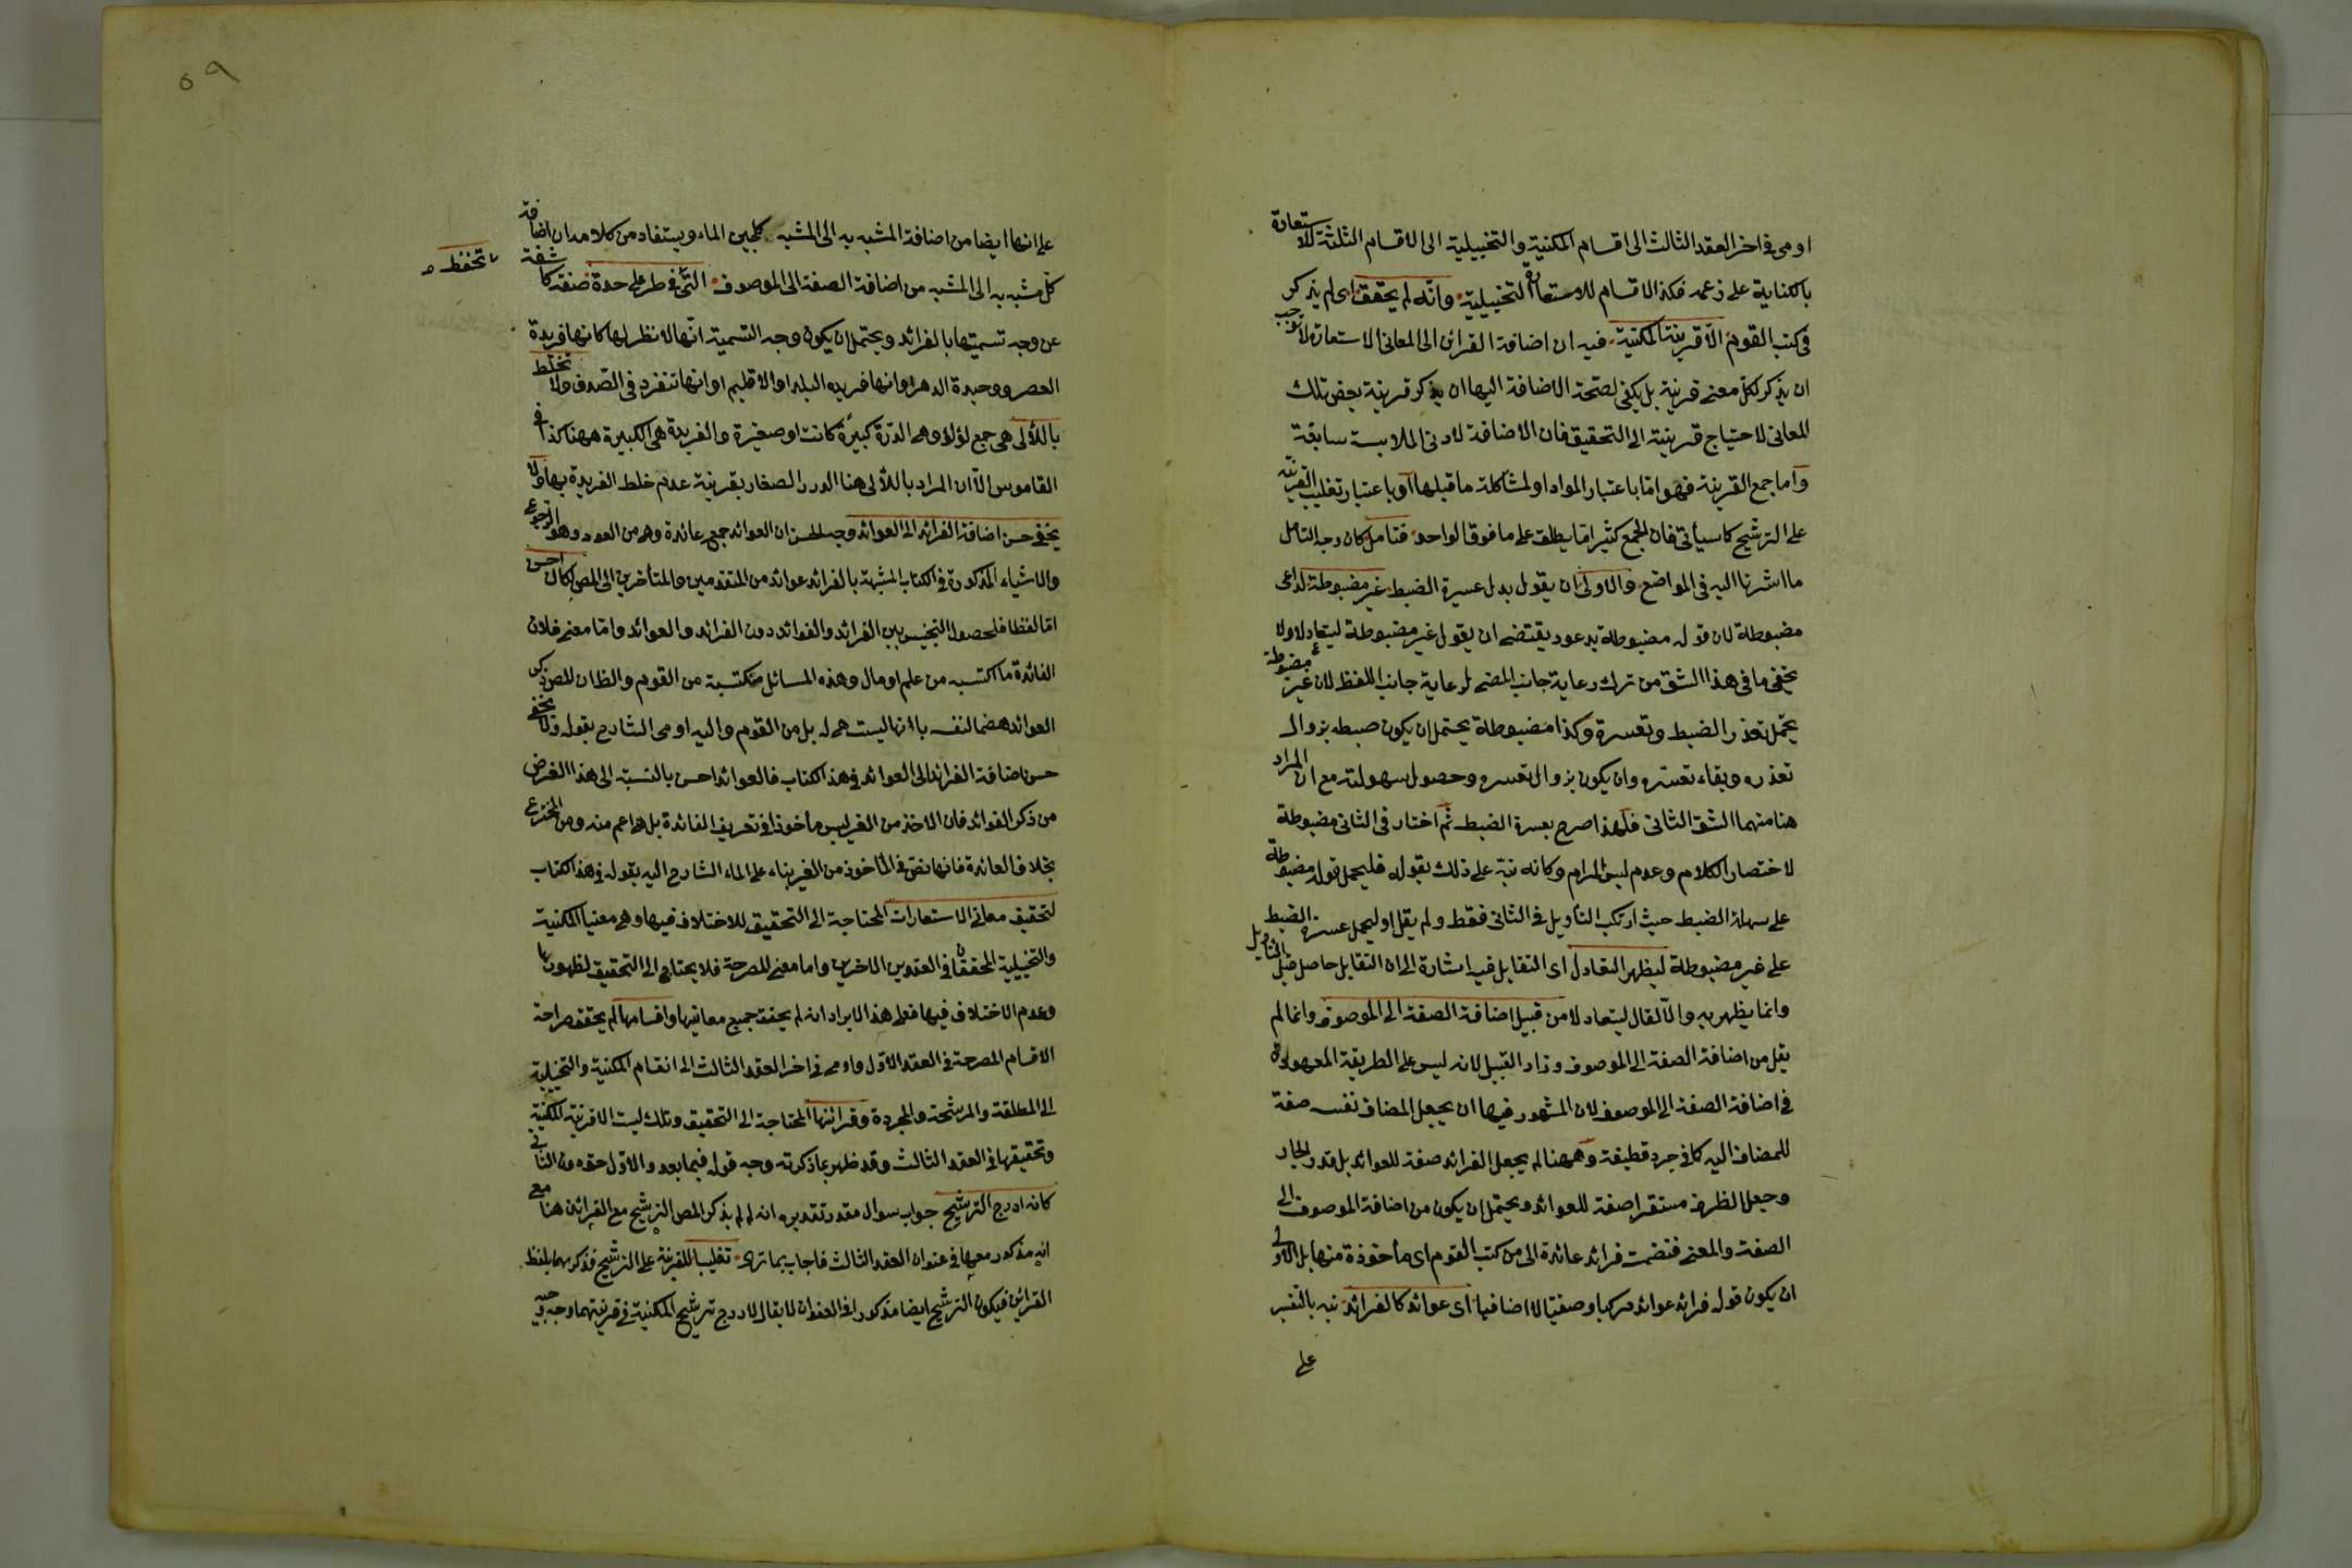 اومى فى اخر العقد الثالث الى اقسام المكنية والتخييلية الى الاقسام الثلثة للاستعارة
بالكناية على زعمه فكذا الاقسام للاستعارة التخييلية وانه لم يحقق اى لم يذكر
فى كتب القوم الا قرينة المكنية فيه ان اضافة القرائن الى المعانى الاستعارة لا توجب
ان يذكر لكل معنى قرينة بل يكفى لصحة الاضافة اليها ان يذكر قرينة بعض تلك
المعانى لاحتياج قرينته الى التحقيق فان الاضافة لادنى الملابسة سابقة
واما جمع القرينة فهو اما باعتبار المواد او لمشاكلة ما قبلها او باعتبار تغليب القرينة
على الترشيح كما سيأتى فان الجمع كثيرا ما يطلق على ما فوق الواحد فتامل كان وجه التامل
ما اشرنا اليه فى المواضع والاولى ان يقول بدل عسيرة الضبط غير مضبوطة لداعى
مضبوطة لان قوله مضبوطة يدعو ويقتضى ان يقول غير مضبوطة ليتعادلا ولا
يخفى ما فى هذا الشق من ترك رعاية جانب المعنى لرعاية جانب اللفظ لان غير مضبوطة
يحتمل تعذر الضبط وتعسره وكذا مضبوطة يحتمل ان يكون ضبطه بزوال
تعذره وبقاء تعسره وان يكون بزوال تعسره وحصول سهولته مع ان المراد
هنا منهما الشق الثانى فلهذا صرح بعسرة الضبط ثم اختار فى الثانى مضبوطة
لاختصار الكلام وعدم لبس المرام وكانه نبه على ذلك بقوله فليحمل قوله مضبوطة
على سهلة الضبط حيث ارتكب التأويل فى الثانى فقط ولم يقل او ليحمل عسيرة الضبط
على غير مضبوطة ليظهر التعادل اى التقابل فيه اشارة الى ان التقابل حاصل قبل التأويل
وانما يظهر به والا لقال ليتعادلا من قبيل اضافة الصفة الى الموصوف وانما لم
يقل من اضافة الصفة الى الموصوف وزاد القبيل لانه ليس على الطريقة المعهودة
فى اضافة الصفة الى الموصوف لان المشهور فيها ان يجعل المضاف نفسه صفة
للمضاف اليه كما فى جرد قطيفة وههنا لم يجعل الفرائد صفة للعوائد بل قدر الجار
وجعل الظرف مستقرا صفة للعوائد ويحتمل ان يكون من اضافة الموصوف الى
الصفة والمعنى فنضمت فرائد عائدة الى من كتب القوم اى مأخوذة منها بل الاولى
ان يكون قوله فرائد عوائد مركبا وصفيا لا اضافيا اى عوائد كالفرائد نبه بالتفسير
على
٥٩
على انها ايضا من اضافة المشبه به الى المشبه كلجين الماء ويستفاد من كلامه ان اضافة
كل مشبه به الى المشبه من اضافة الصفة الى الموصوف التى فى ظرف على حدة صفة كاشفة
تحفظ
عن وجه تسميتها بالفرائد ويحتمل ان يكون وجه التسمية انها لا نظر لها كانها فريدة
العصر ووحيدة الدهر او انها فريدة البلد او الاقليم او انها تنفرد فى الصدف ولا تخلط
باللألى هى جمع لؤلؤ وهى الدرة كبيرة كانت او صغيرة والفريدة هى الكبيرة ههنا كذا فى
القاموس الا ان المراد باللألى هنا الدرر الصغار بقرينة عدم خلط الفريدة بها ولا
يخفى حسن اضافة الفرائد الى العوائد وجه الحسن ان العوائد جمع عائدة وهى من العود وهو الرجوع
والاشياء المذكورة فى الكتاب المشبهة بالفرائد عوائد من المتقدمين والمتأخرين الى المص لكان احسن
اما لفظا فلحصول التجنيس بين الفرائد والفوائد دون الفرائد والعوائد واما معنى فلان
الفائدة ما اكتسبه من علم او مال وهذه المسائل مكتسبة من القوم والظان للمص ذكر
العوائد هضما لنفسه بانها ليست هى له بل من القوم واليه اومى الشارح بقوله ولا يخفى
حسن اضافة الفرائد الى العوائد فى هذا الكتاب فالعوائد احسن بالنسبة الى هذا الغرض
من ذكر الفوائد فان الاخذ من الغير ليس مأخوذا فى تعريف الفائدة بل هو اعم منه ومن المخترع
بخلاف العائدة فانها نص فى المأخوذ من الغير بناء على الماء الشارح اليه بقوله فى هذا الكتاب
لتحقيق معانى الاستعارات المحتاجة الى التحقيق للاختلاف فيها وهى معنيا المكنية
والتخييلية المحققان فى العقدين الاخرين واما معنى المصرحة فلا يحتاج الى التحقيق لظهورها
وعدم الاختلاف فيها فعلى هذا لا يراد انه لم يحقق جميع معانيها واقسامها لم يحقق صراحة
الاقسام المصرحة فى العقد الاول واومى فى اخر العقد الثالث الى انقسام المكنية والتخييلية
الى المطلقة والمرشحة والمجردة وقرائنها المحتاجة الى التحقيق وتلك ليست الا قرينة المكنية
وتحقيقها فى العقد الثالث وقد ظهر بما ذكرته وجه قوله فيما بعد والاول حقه من الثانى
كانه ادرج الترشيح جواب سوال مقدر تقديره انه لم لم يذكر المص الترشيح مع القرائن هنا مع
انه مذكور معها فى عنوان العقد الثالث فاجاب بما ترى تغليبا للقرينة على الترشيح فذكرهما بلفظ
القرائن فيكون الترشيح ايضا مذكورا فى العنوان لا يقال لا درج ترشيح المكنية فى قرينتهما وجه وجيه